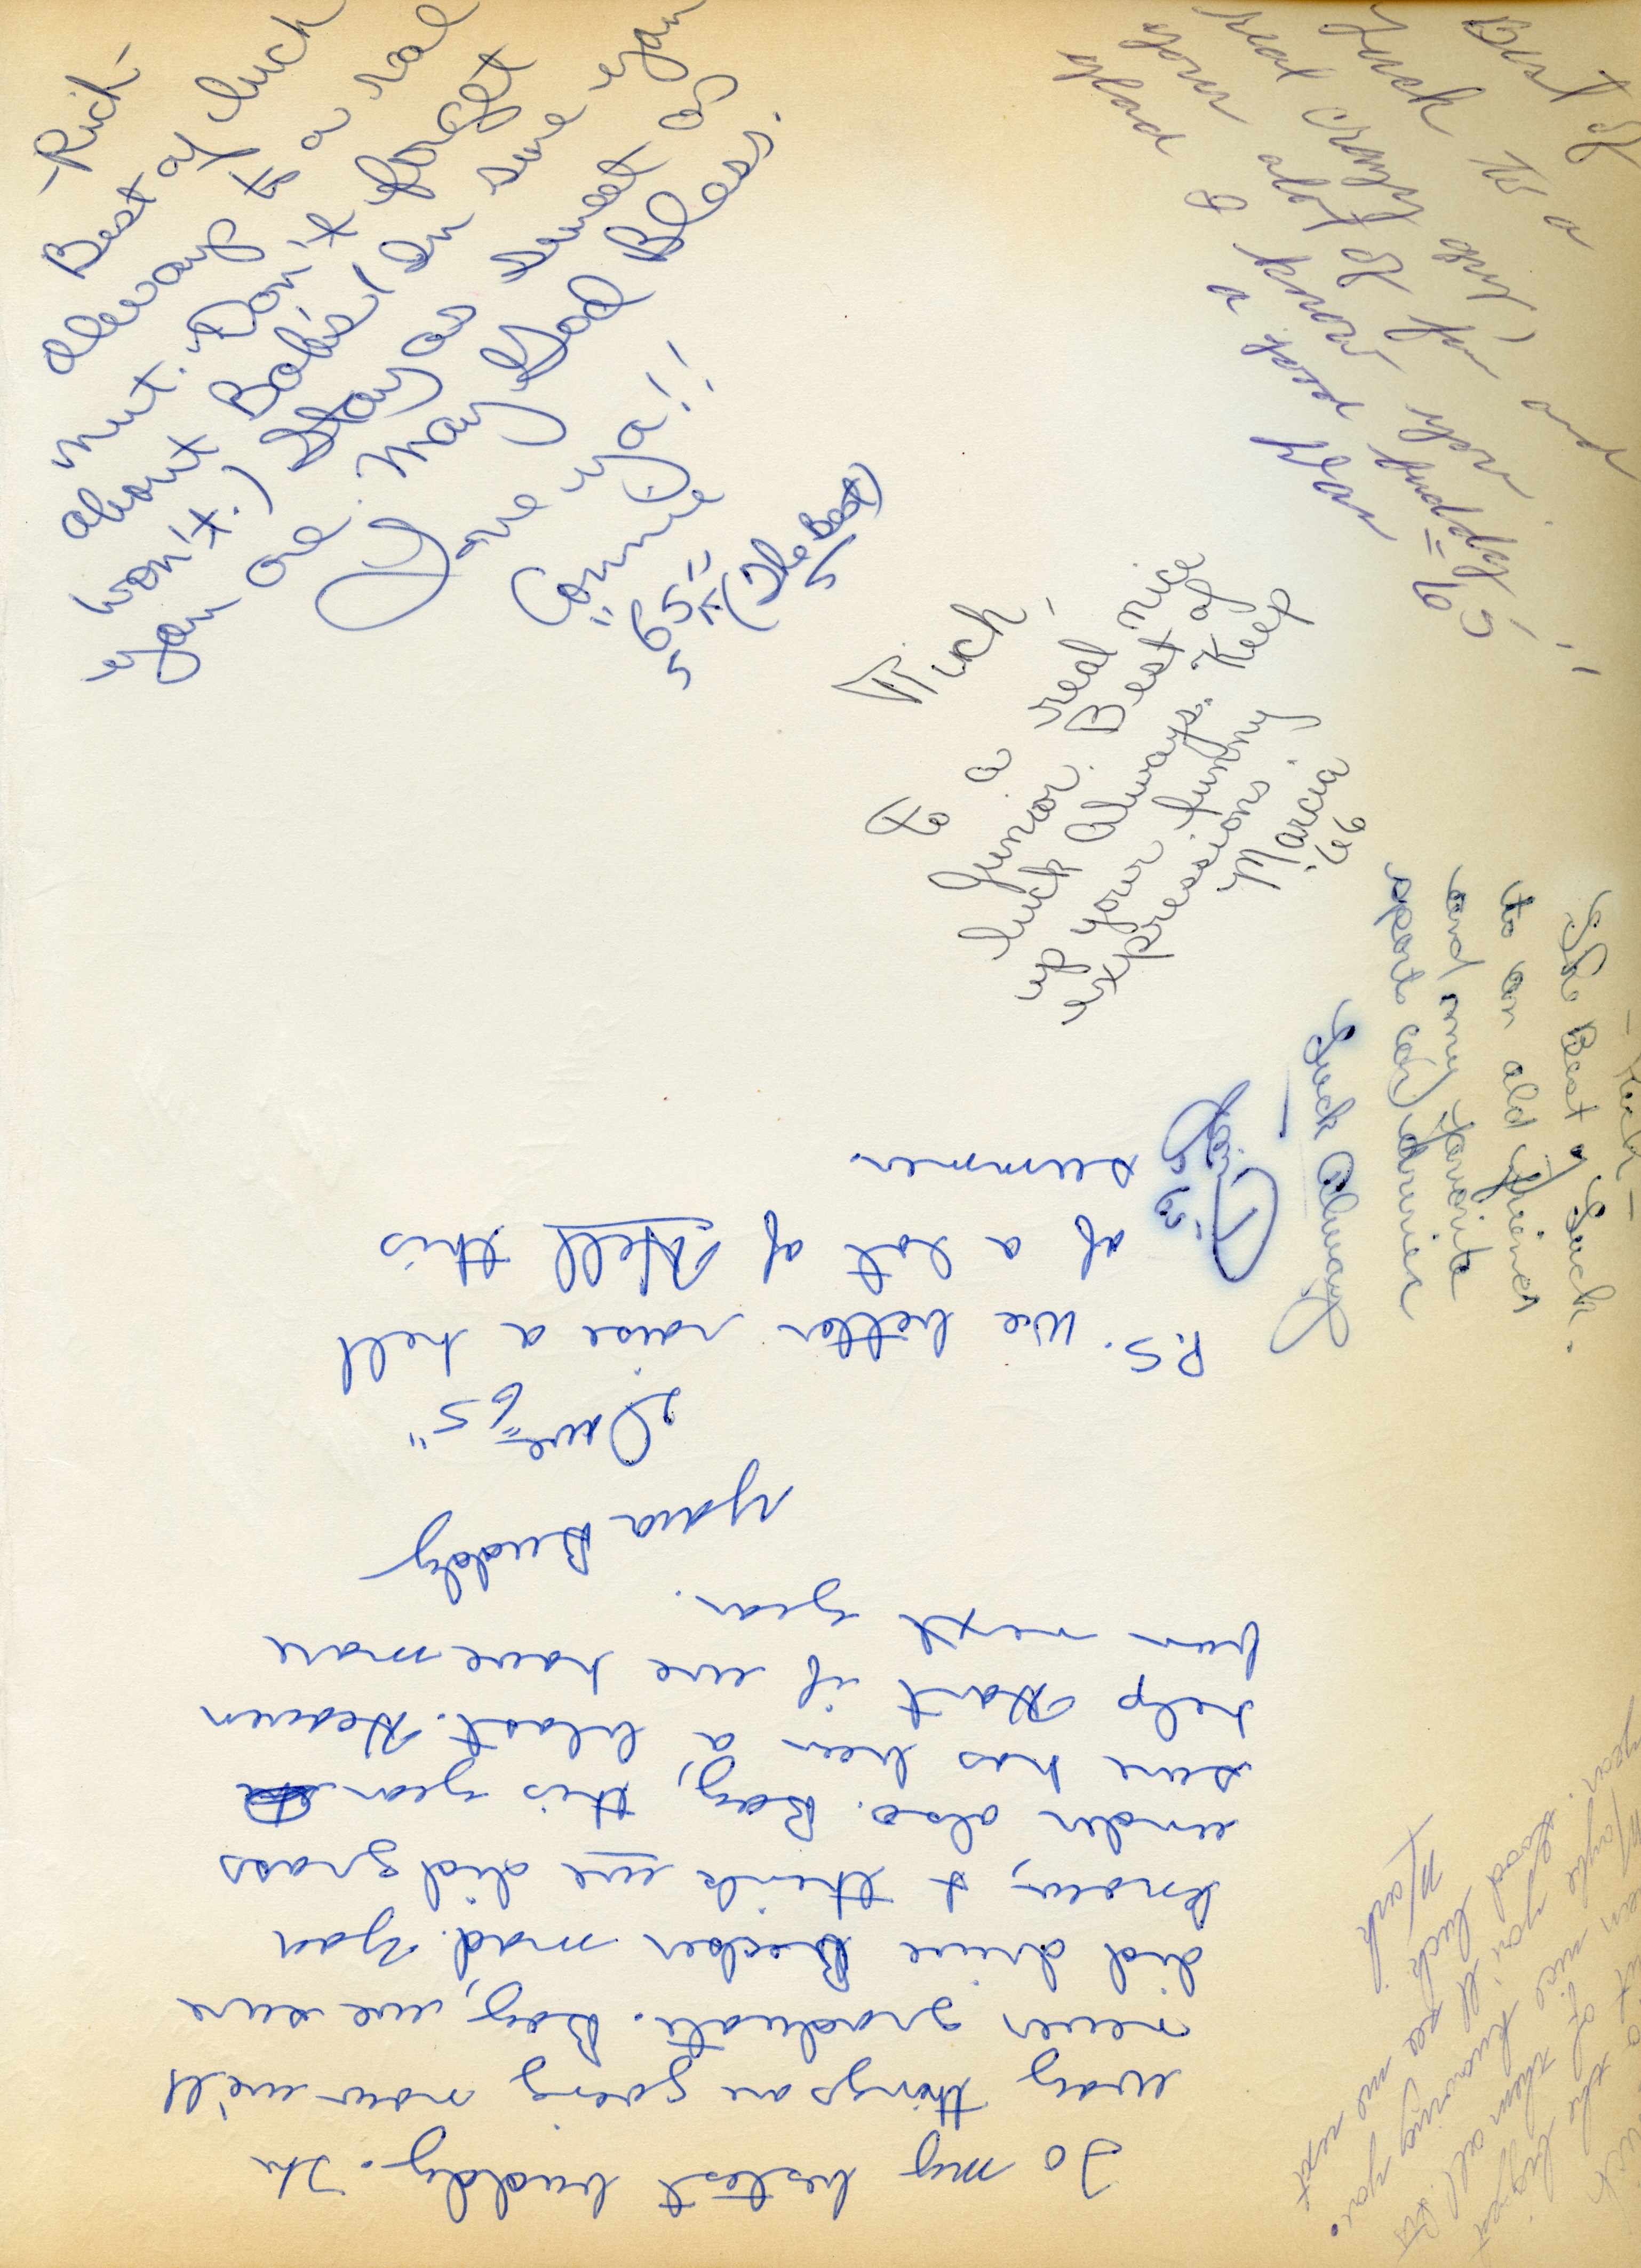 -Rich-
Best of luck
always to a real
nut. Don't forget
about Bob's! (I'm sure you
won't.) Stay as sweet as
you are. May God Bless.
Love ya!!
Connie
"65"
(The Best)
Best of
Luck to a
real crazy guy,
your alot of fun and
glad I know you
a good buddy!!
Dan
"65
Rich,
To a real nice
Junior. Best of
luck Always. Keep
up your funny
expressions.
Marcia
'66
-Rich-
The Best of Luck.
to an old friend
and my favorite
sports car driver
Luck Always
'65
To my bestest buddy. The
way things are going now we'll
never graduate. Boy, we sure
did drive Becker mad. You
know, I think we did grass
under also. Boy, this year
sure has been a blast. Heaven
help Hart if we have more
fun next year.
Your Buddy
Dave "65"
P.S. We better raise a hell
of a lot of Hell this
summer.
of the biggest
nice of them all.
Maybe you'll see me next
year.
Good luck
Mark